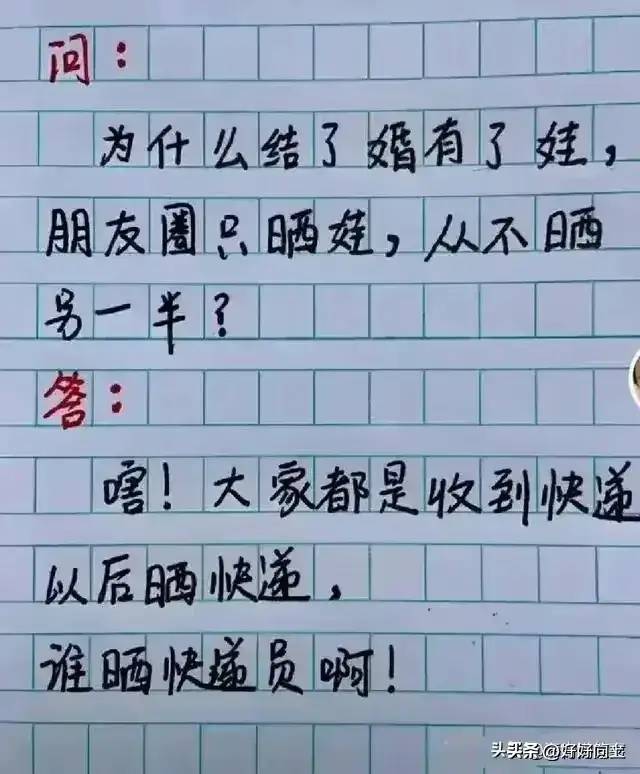 问：
为什么结了婚有了娃，
朋友圈只晒娃，从不晒
另一半？
答：
嗐！大家都是收到快递
以后晒快递，
谁晒快递员啊！
头头条@好好向上